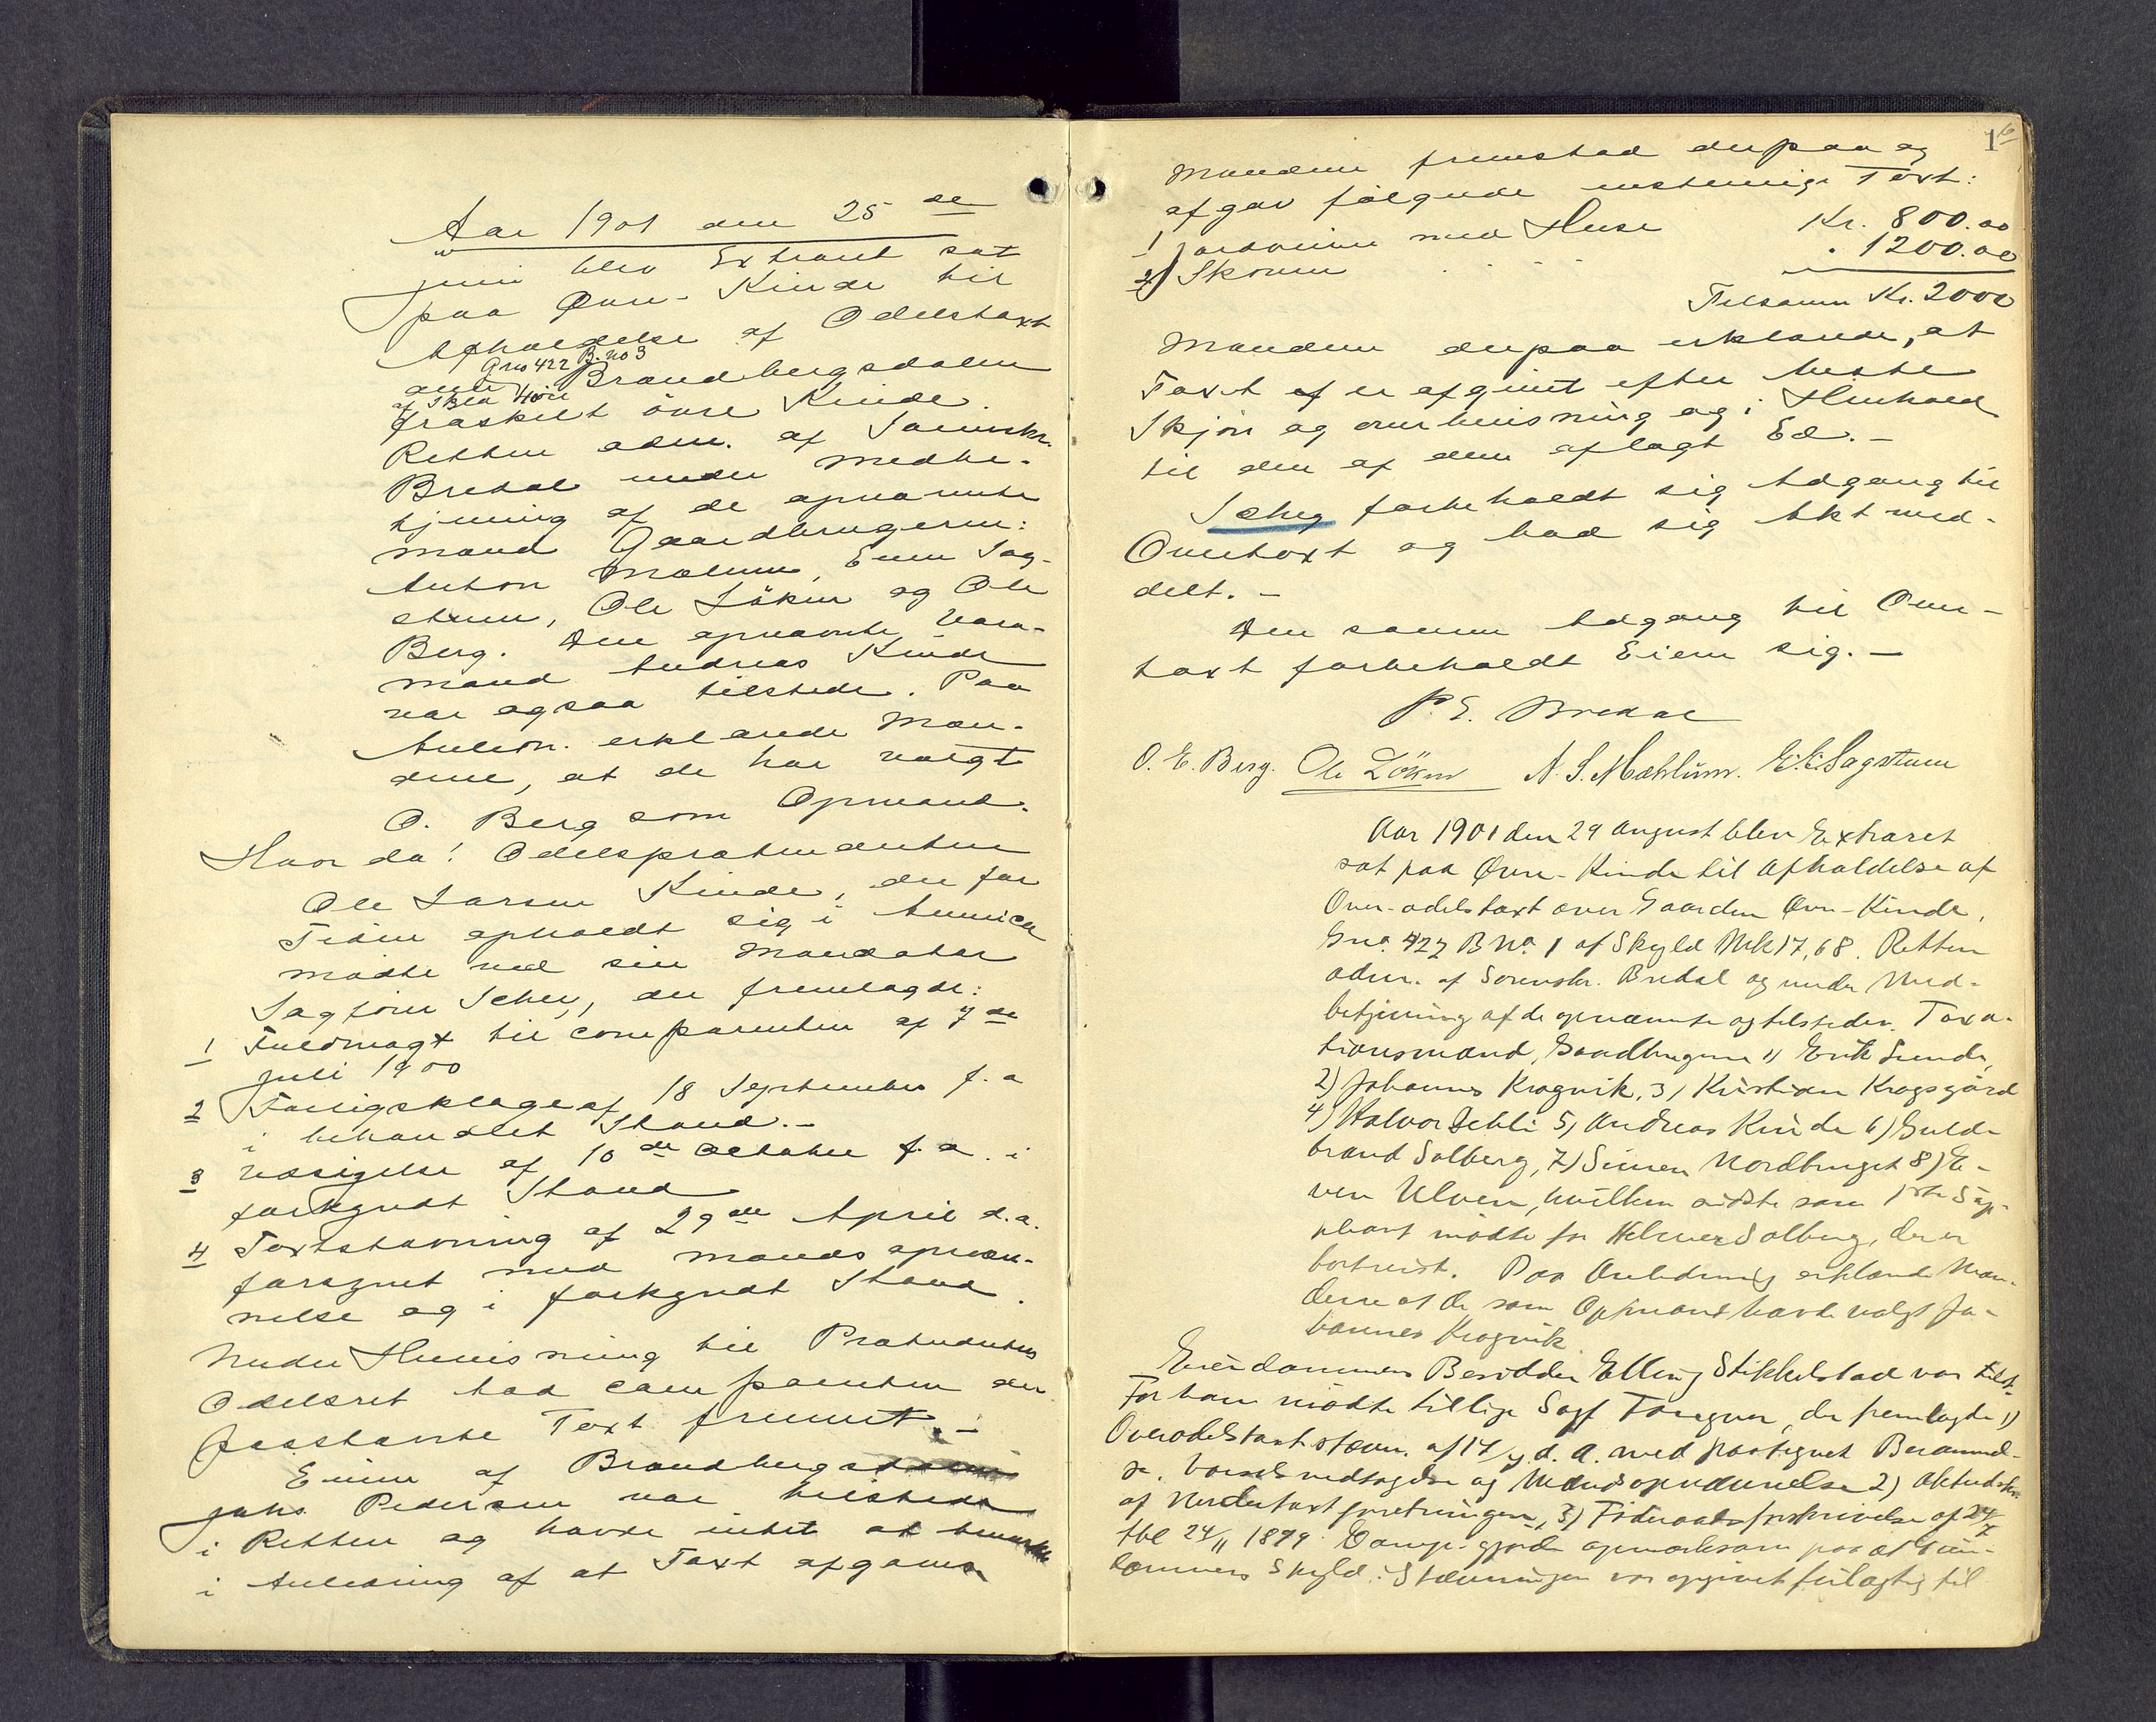 Aar 1901 den 25 de
juni blev Extraret sat
paa Øvre-Kinde til
Afholdelse af Odelstaxt
Gno 422 B. no 3
over Brandbergsdalen
af Skld
fraskilt övre Kinde.
Retten adm. af Sorenskr.
Bredal under medbe-
tjening af de opnævnte
mænd Gaardbrugerne:
Anton Mælum, Even Sag-
stuen, Ole Löken og Ole
Berg. Den opnævnte Vara-
mand Andreas Kinde
var ogsaa tilstede. Paa
Anledn. erklærede Mæn-
dene, at de har valgt
O. Berg som Opmand.
Hvor da! Odelsprætendenten
Ole Larsen Kinde, der for
Tiden opholdt sig i Amerika
mødte ved sin Mandatar
Sagförer Schey, der fremlagde:
1 Fuldmagt til comparenten af 7 de
juli 1900
2 Forligsklage af 18 September f. a
i behandlet Stand.-
3 Udsigelse af 10 de October f. a. i
forkyndt Stand
4 Taxtstævning af 29 de April d. a.
forsynet med mænds opnæv-
nelse og i forkyndt Stand.
Under Henvisning til Prætendentens
Odelsret bad comparenten den
paastævnte Taxt fremmet.-
Eieren af Brandbergsdalen
Johs. Pedersen var tilstede
i Retten og havde intet at bemærke
i Anledning af at Taxt afgaves
16
Mændene fremstod derpaa og
afgav fölgende enstemmige Taxt:
1 Jordveien med Huse Kr. 800.00
2) Skoven . . . . 1200.00
Tilsammen Kr. 2000
Mændene derpaa erklærede, at
Taxt af er afgivet efter bedste
Skjön og overbevisning og i Henhold
til den af dem aflagt Ed.-
Schey forbeholdt sig Adgang til
Overtaxt og bad sig Akt med-
delt.-
Den samme Adgang til Over-
taxt forbeholdt Eieren sig.-
P. E. Bredal
O. E. Berg. Ole Löken N. S. Mæhlum. E. E. Sagstuen
Aar 1901 den 29 August blev Extraret
sat paa Øvre-Kinde til Afholdelse af
Over-odelstaxt over Gaarden Øvre-Kinde,
Gno. 422 B No. 1 af Skyld Mk 17,68. Retten
adm. af Sorenskr. Bredal og under Med-
betjening af de opnævnte og tilstedev. Taxa-
tionsmænd, Gaardbrugerne 1) Erik Sunde,
2) Johannes Krogvik, 3) Kristian Krogsgård
4) Halvor Sehli 5) Andreas Kinde 6) Guld-
brand Solberg, 7) Simen Nordbruget 8) E-
ven Ulven, hvilken sidste som 1ste Sup-
pleant mödte for Helmer Solberg, der er
bortreist. Paa Anledning erklærede Mæn-
dene at de som Opmand havde valgt Jo-
hannes Krogvik
Eiendommens Besidder Elling Stikkelstad var tilst.
For ham mödte tillige Sagf. Torgner, der fremlagde 1)
Overodelstaxtstævn. af 17 d. A. med paategnet Berammel-
se, Varselsvedtagelse og Mændsopnævnelse 2) Aktudskr.
af Undertaxtforretningen, 3) Föderaadsforskrivelse af 24/7
tbl 24/11 1899. Comp. gjorde opmærksom paa at Eien-
dommens Skyld i Stævningen var opgivet feilagtig til